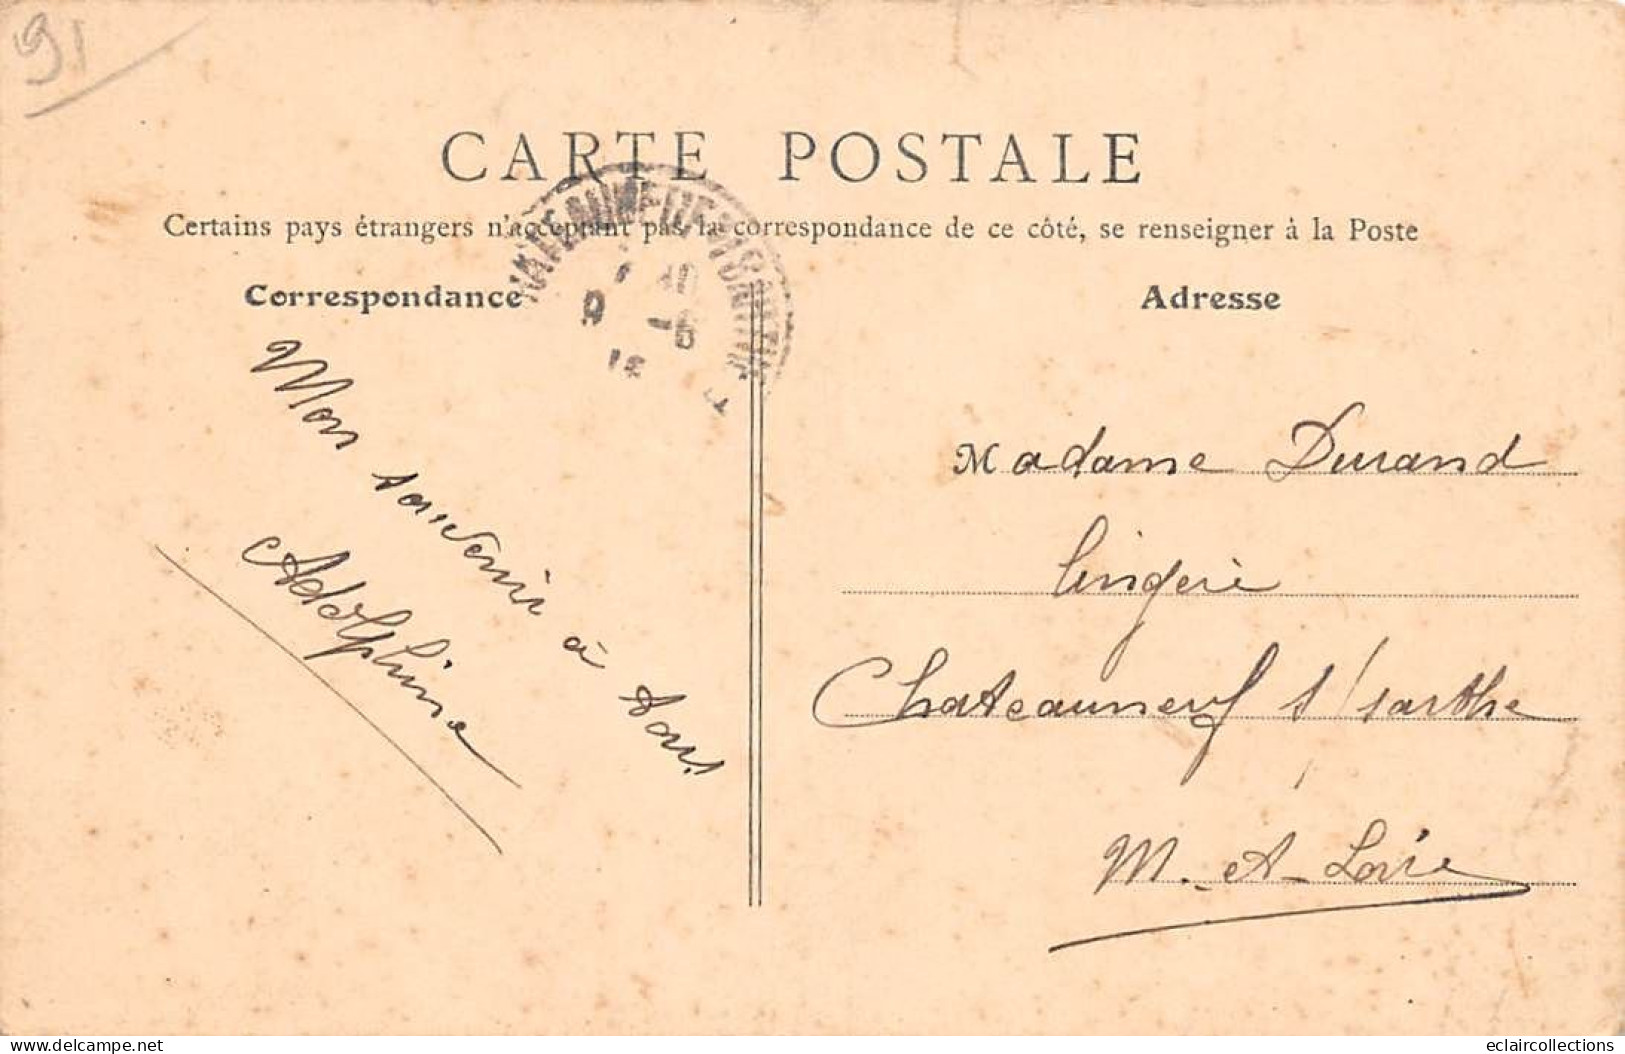 91
CARTE POSTALE
Certains pays étrangers n'acceptant pas la correspondance de ce côté, se renseigner à la Poste
Correspondance
Mon souvenir à tous
Adolphine
Adresse
Madame Durand
lingère
Chateauneuf s/sarthe
M.-et-Loire
delcampe.net
eclaircollections